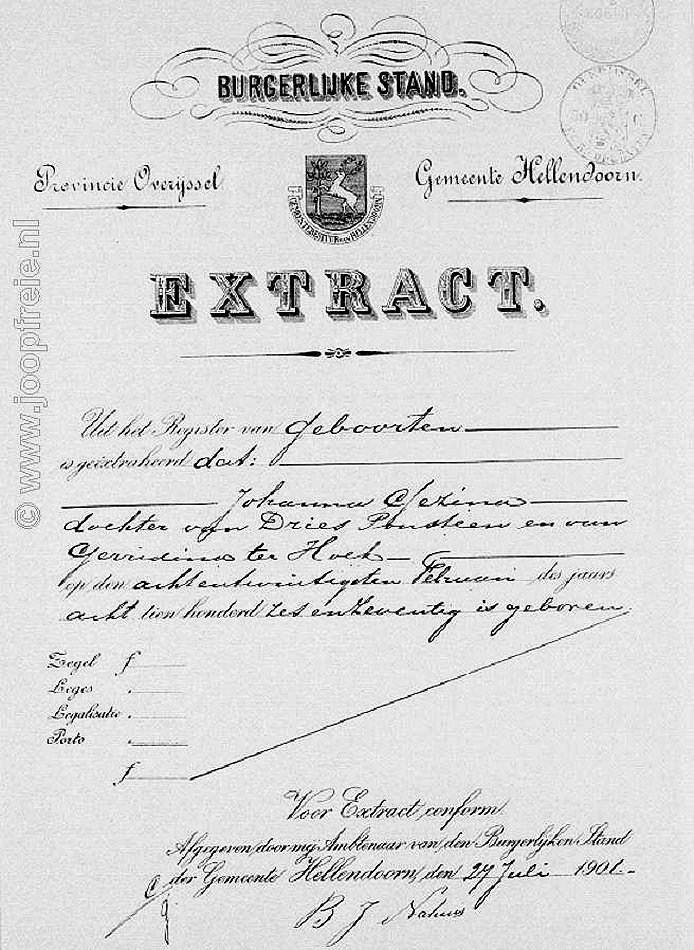 BURGERLIJKE STAND.
Provincie Overijssel
GEMEENTEBESTUUR VAN HELLENDOORN
Gemeente Hellendoorn.
EXTRACT.
Uit het Register van Geboorten
is geëxtraheerd dat:
Johanna Gezina
dochter van Dries Ponsteen en van
Gerridina ter Hoek
op den achtentwintigsten Februari des jaars
acht tien honderd zes en zeventig is geboren.
Zegel f
Leges "
Legalisatie "
Porto "
f
Voor Extract conform
Afgegeven door mij Ambtenaar van den Burgerlijken Stand
der Gemeente Hellendoorn, den 27 Juli 1901.
B J Nahuis
© www.joopfreie.nl